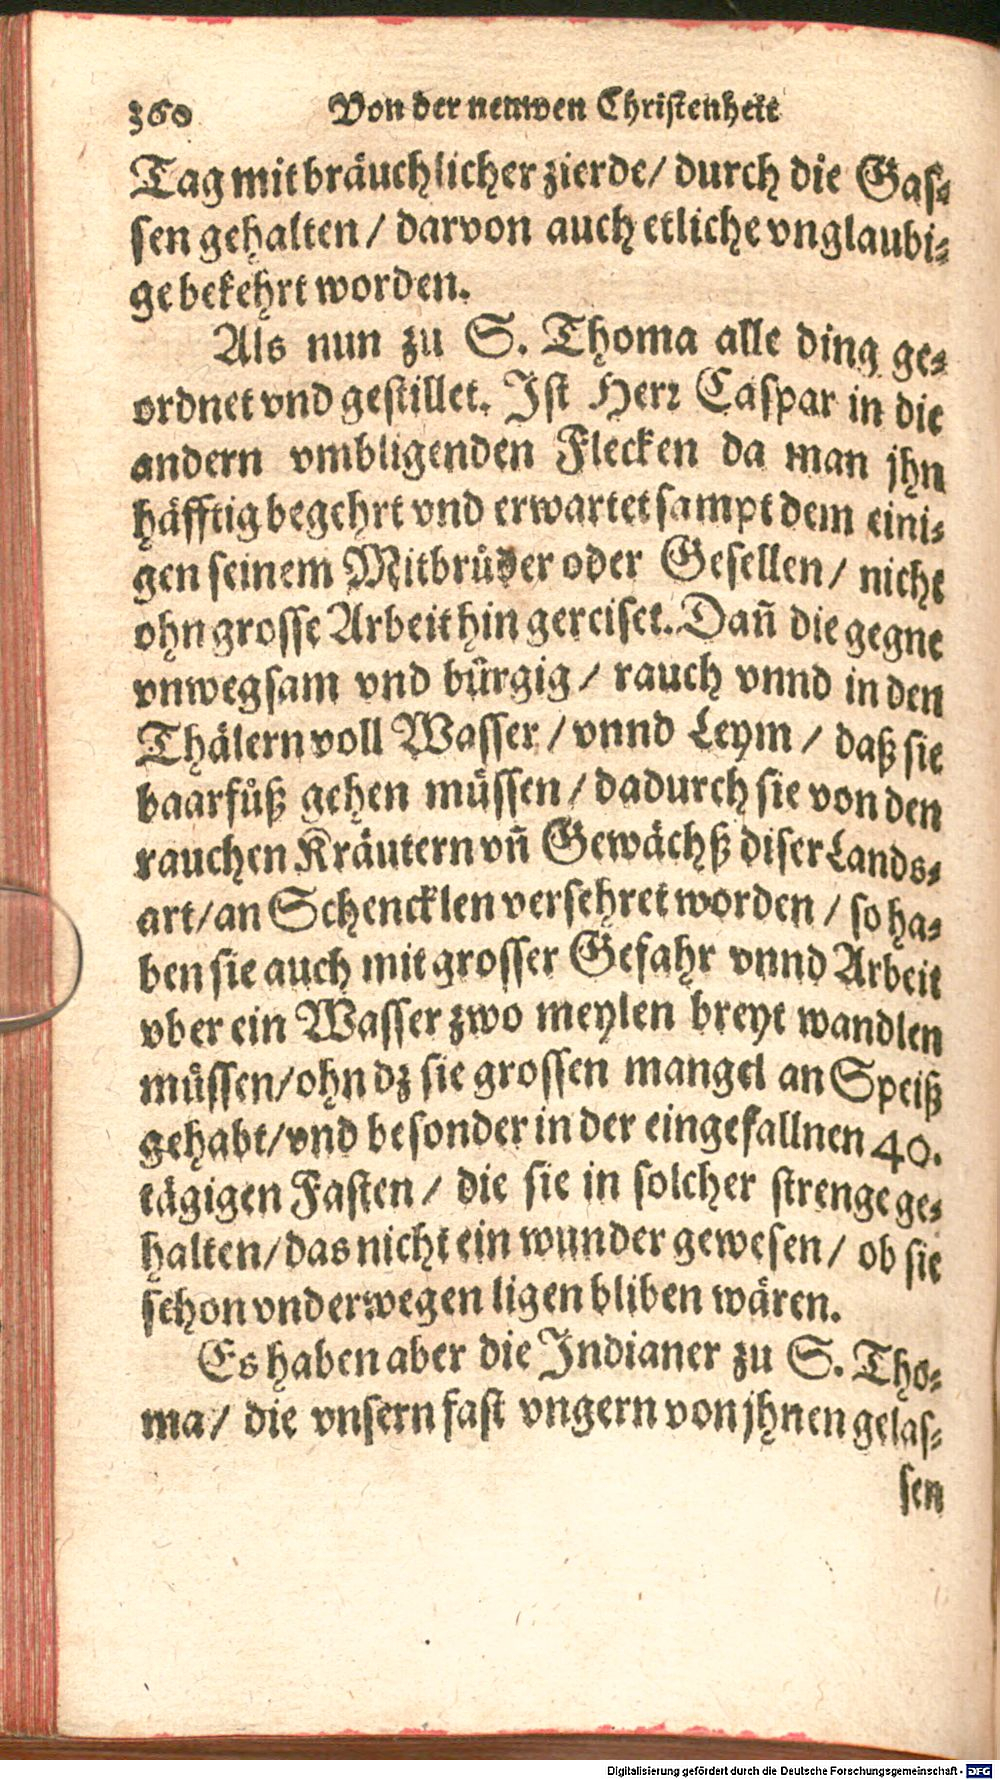 360 Von der neuwen Christenheit
Tag mit bräuchlicher zierde/ durch die Gas-
sen gehalten/ darvon auch etliche vnglaubi-
ge bekehrt worden.
Als nun zu S. Thoma alle ding ge-
ordnet vnd gestillet. Ist Herr Caspar in die
andern vmbligenden Flecken da man jhn
häfftig begehrt vnd erwartet sampt dem eini-
gen seinem Mitbrüder oder Gesellen/ nicht
ohn grosse Arbeit hin gereiset. Dañ die gegne
vnwegsam vnd bürgig/ rauch vnnd in den
Thälern voll Wasser/ vnnd Leym/ daß sie
baarfůß gehen müssen/ dadurch sie von den
rauchen Kräutern vñ Gewächß diser Lands-
art/ an Schencklen versehret worden/ so ha-
ben sie auch mit grosser Gefahr vnnd Arbeit
vber ein Wasser zwo meylen breyt wandlen
müssen/ ohn dz sie grossen mangel an Speiß
gehabt/ vnd besonder in der eingefallnen 40.
tägigen Fasten/ die sie in solcher strenge ge-
halten/ das nicht ein wunder gewesen/ ob sie
schon vnderwegen ligen bliben wären.
Es haben aber die Indianer zu S. Tho-
ma/ die vnsern fast vngern von jhnen gelas-
sen
Digitalisierung gefördert durch die Deutsche Forschungsgemeinschaft - DFG